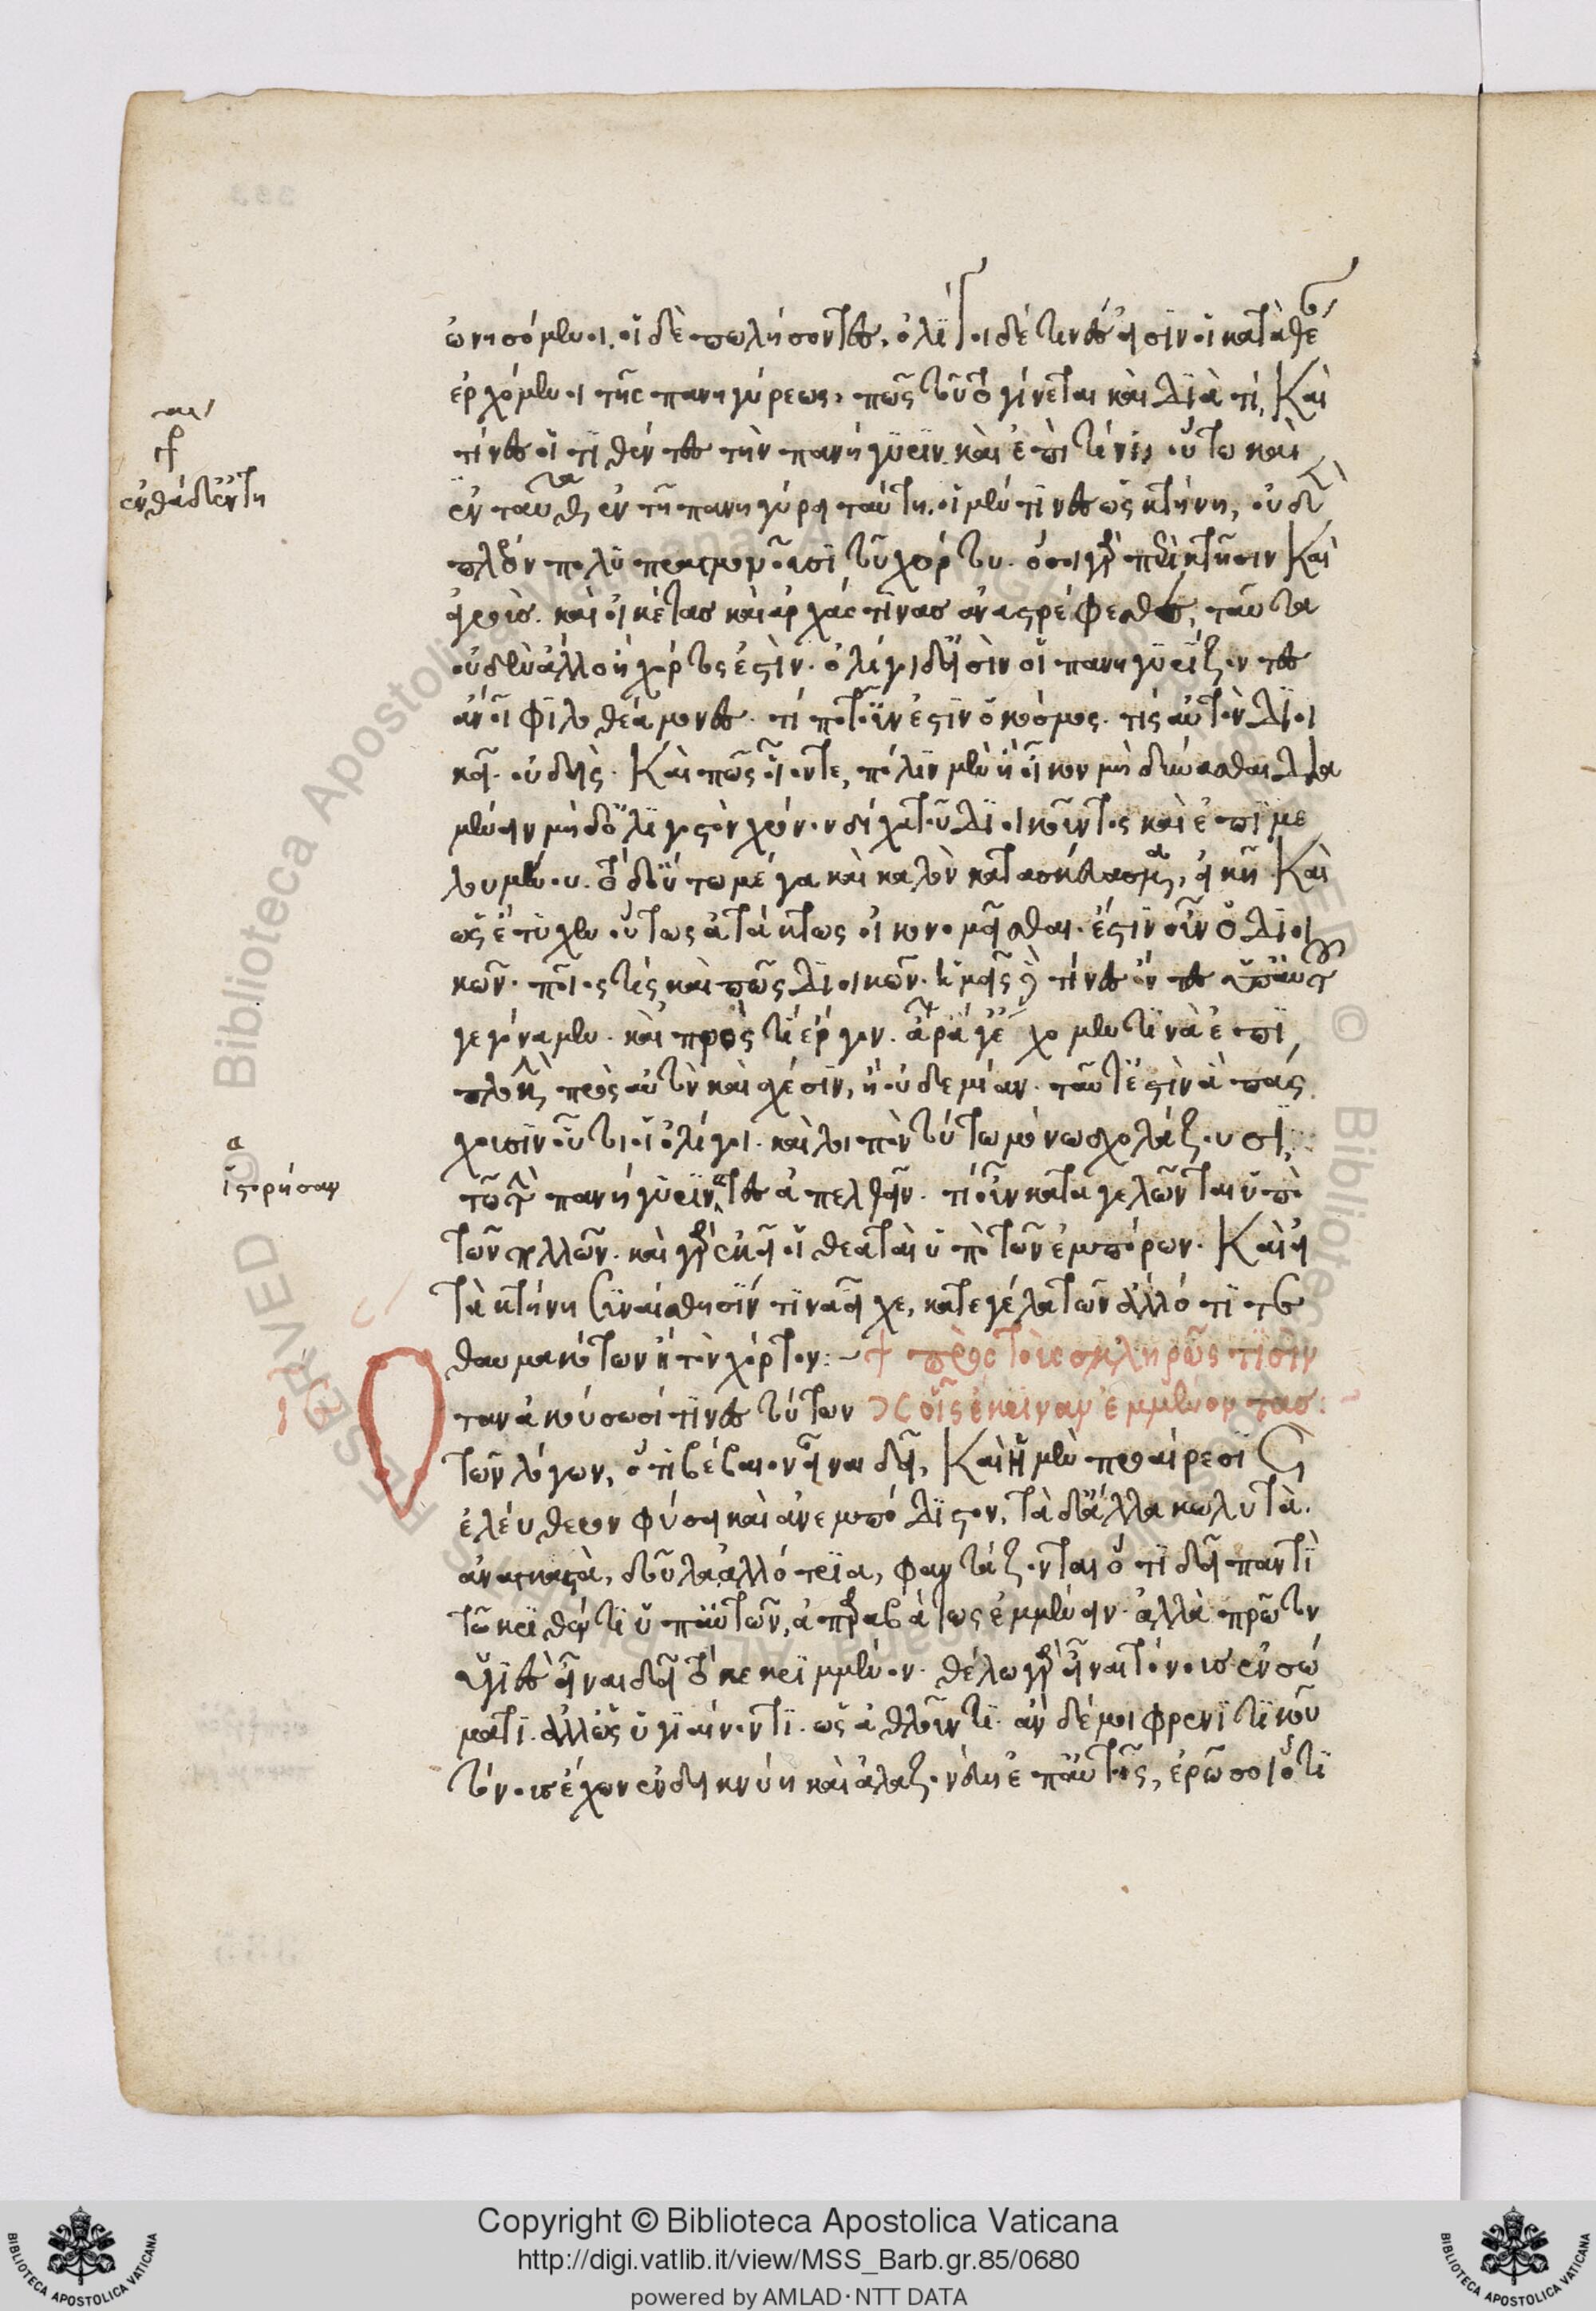 ὠνησόμενοι. οἱ δὲ πωλήσοντες, ὀλίγοι δέ τινες εἰσὶν οἱ κατὰ θέαν
ἐρχόμενοι τῆς πανηγύρεως, πῶς τοῦτο γίνεται καὶ διὰ τί, Καὶ
τίνες οἱ τιθέντες τὴν πανήγυριν. καὶ ἐπὶ τίνι, οὕτω καὶ
ἐνταῦθα ἐν τῇ πανηγύρει ταύτῃ. οἱ μέν τινες ὡς κτήνη, οὐδὲν
πλέον πολυπραγμονοῦσι τοῦ χόρτου. ὅσοι γὰρ περὶ κτῆσιν Καὶ
ἀγροὺς. καὶ οἰκέτας καὶ ἀρχάς τινας ἀναστρέφεσθε, ταῦτα
οὐδὲν ἄλλο ἢ χόρτος ἐστὶν. ὀλίγοι δ' εἰσὶν οἱ πανηγυρίζοντες
ἄνθρωποι φιλοθεάμονες. τί ποτ' οὖν ἐστιν ὁ κόσμος. τίς αὐτὸν διοι
κεῖ. οὐδείς. Καὶ πῶς οἷόν τε, πόλιν μὲν ἢ οἶκον μὴ δύνασθαι δια
μένειν μηδ' ὀλιγοστὸν χρόνον δίχα τοῦ διοικοῦντος καὶ ἐπιμε
λουμένου. τὸ δ' οὕτω μέγα καὶ καλὸν κατασκεύασμα, εἰκῇ Καὶ
ὡς ἔτυχεν οὕτως ἀτάκτως οἰκονομεῖσθαι. ἔστιν οὖν ὁ διοι
κῶν. ποῖός τις καὶ πῶς διοικῶν. ἡμεῖς δὲ τίνες ὄντες ὑπ' αὐτοῦ
γεγόναμεν. καὶ πρὸς τί ἔργον. ἆρά γε ἔχομέν τινα ἐπι
πλοκὴν πρὸς αὐτὸν καὶ σχέσιν, ἢ οὐδεμίαν. ταῦτ' ἔστιν ἃ πάσ
χουσιν οὗτοι οἱ ὀλίγοι. καὶ λοιπὸν τούτῳ μόνῳ σχολάζουσι,
τῷ τὴν πανήγυριν ̔τες ἀπελθεῖν. τί οὖν καταγελῶνται ὑπὸ
τῶν πολλῶν. καὶ γὰρ ἐκεῖ οἱ θεαταὶ ὑπὸ τῶν ἐμπόρων. Καὶ εἰ
τὰ κτήνη συναίσθησίν τινα εἶχε, κατεγέλα τῶν ἄλλό τι τε
θαυμακότων ἢ τὸν χόρτον:– + πρὸς τοὺς σκληρῶς τισιν
Οταν ἀκούσωσί τινες τούτων οἷς ἔκριναν ἐμμένοντας:–
τῶν λόγων, ὅτι βέβαιον εἶναι δεῖ, Καὶ ἡ μὲν προαίρεσις
ἐλεύθερον φύσει καὶ ἀνεμπόδιστον, τὰ δ' ἄλλα κωλυτὰ.
ἀναγκαστὰ, δοῦλα ἀλλότρια, φαντάζονται ὅτι δεῖ παντὶ
τῷ κριθέντι ὑπ' αὐτῶν, ἀπαραβάτως ἐμμένειν. ἀλλὰ πρῶτον
ὑγιὲς εἶναι δεῖ τὸ κεκριμμένον. θέλω γὰρ εἶναι τόνους ἐν σώ
ματι. ἀλλ' ὡς ὑγιαίνοντι. ὡς ἀθλοῦντι. ἂν δέ μοι φρενιτικοῦ
τόνους ἔχων ἐνδεικνύῃ καὶ ἀλαζονεύῃ ἐπ' αὐτοῖς, ἐρῶ σοι ὅτι
ἐνθάδ' ἐν τῇ
ἱστορήσαν